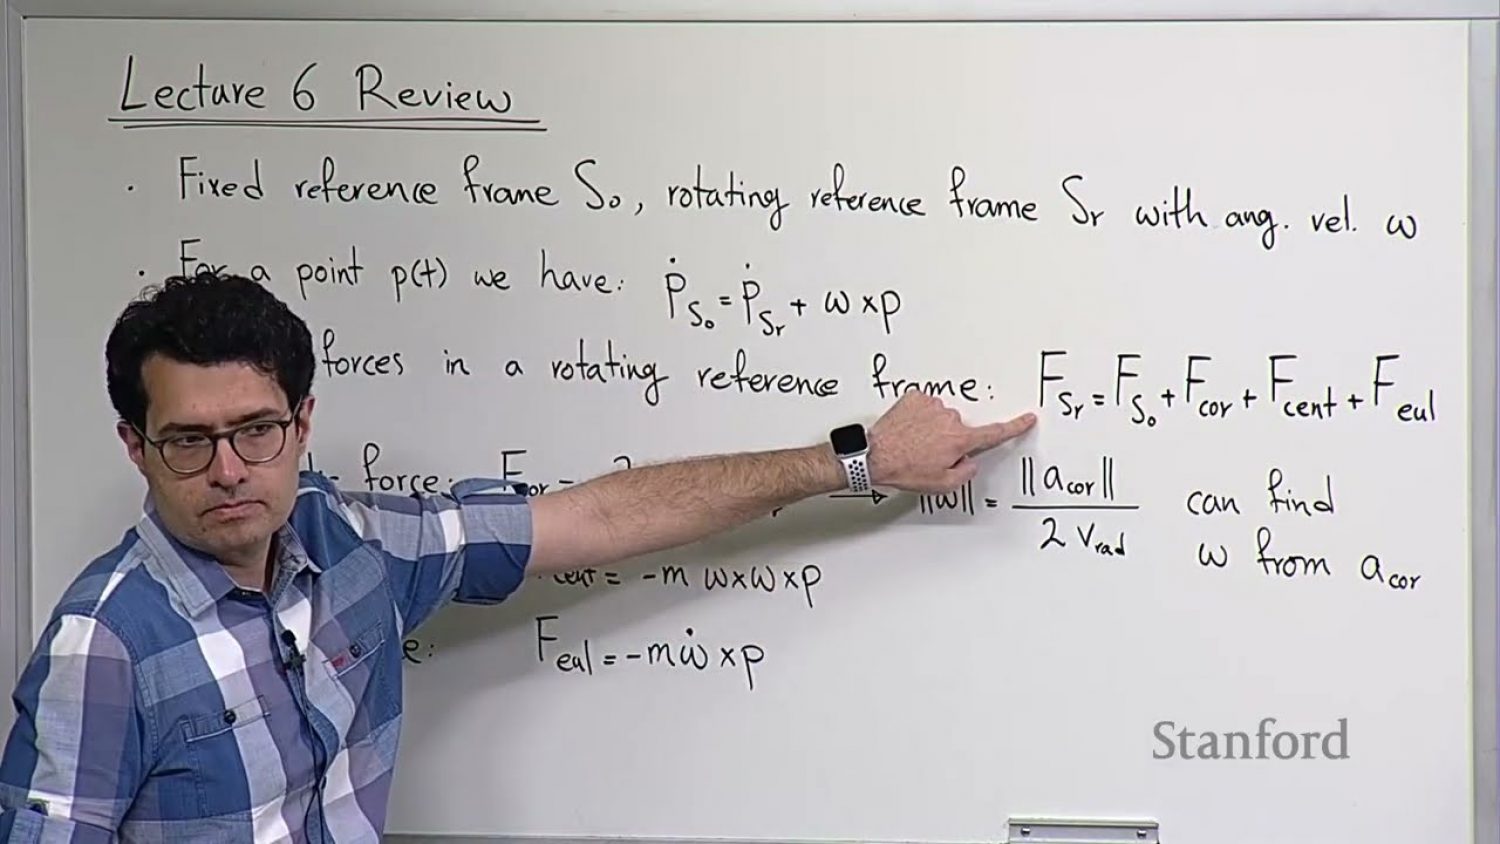 Lecture 6 Review
· Fixed reference frame S₀, rotating reference frame Sr with ang. vel. ω
· For a point p(t) we have: ṗ_S₀ = ṗ_Sr + ω × p
forces in a rotating reference frame: F_Sr = F_S₀ + F_cor + F_cent + F_eul
force: F_cor = ‖ω‖ = ‖a_cor‖ / 2 v_rad can find
ω from a_cor
cent = -m ω×ω×p
F_eul = -m ω̇ × p
Stanford